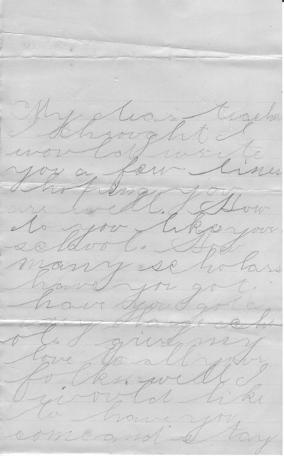 My dear teacher
I throught I
would write
you a few lines
hoping you
are well. How
do you like your
school. How
many scholars
have you got.
have you got a
give my
love to all your
folks. well I
would like
to have you
come and stay